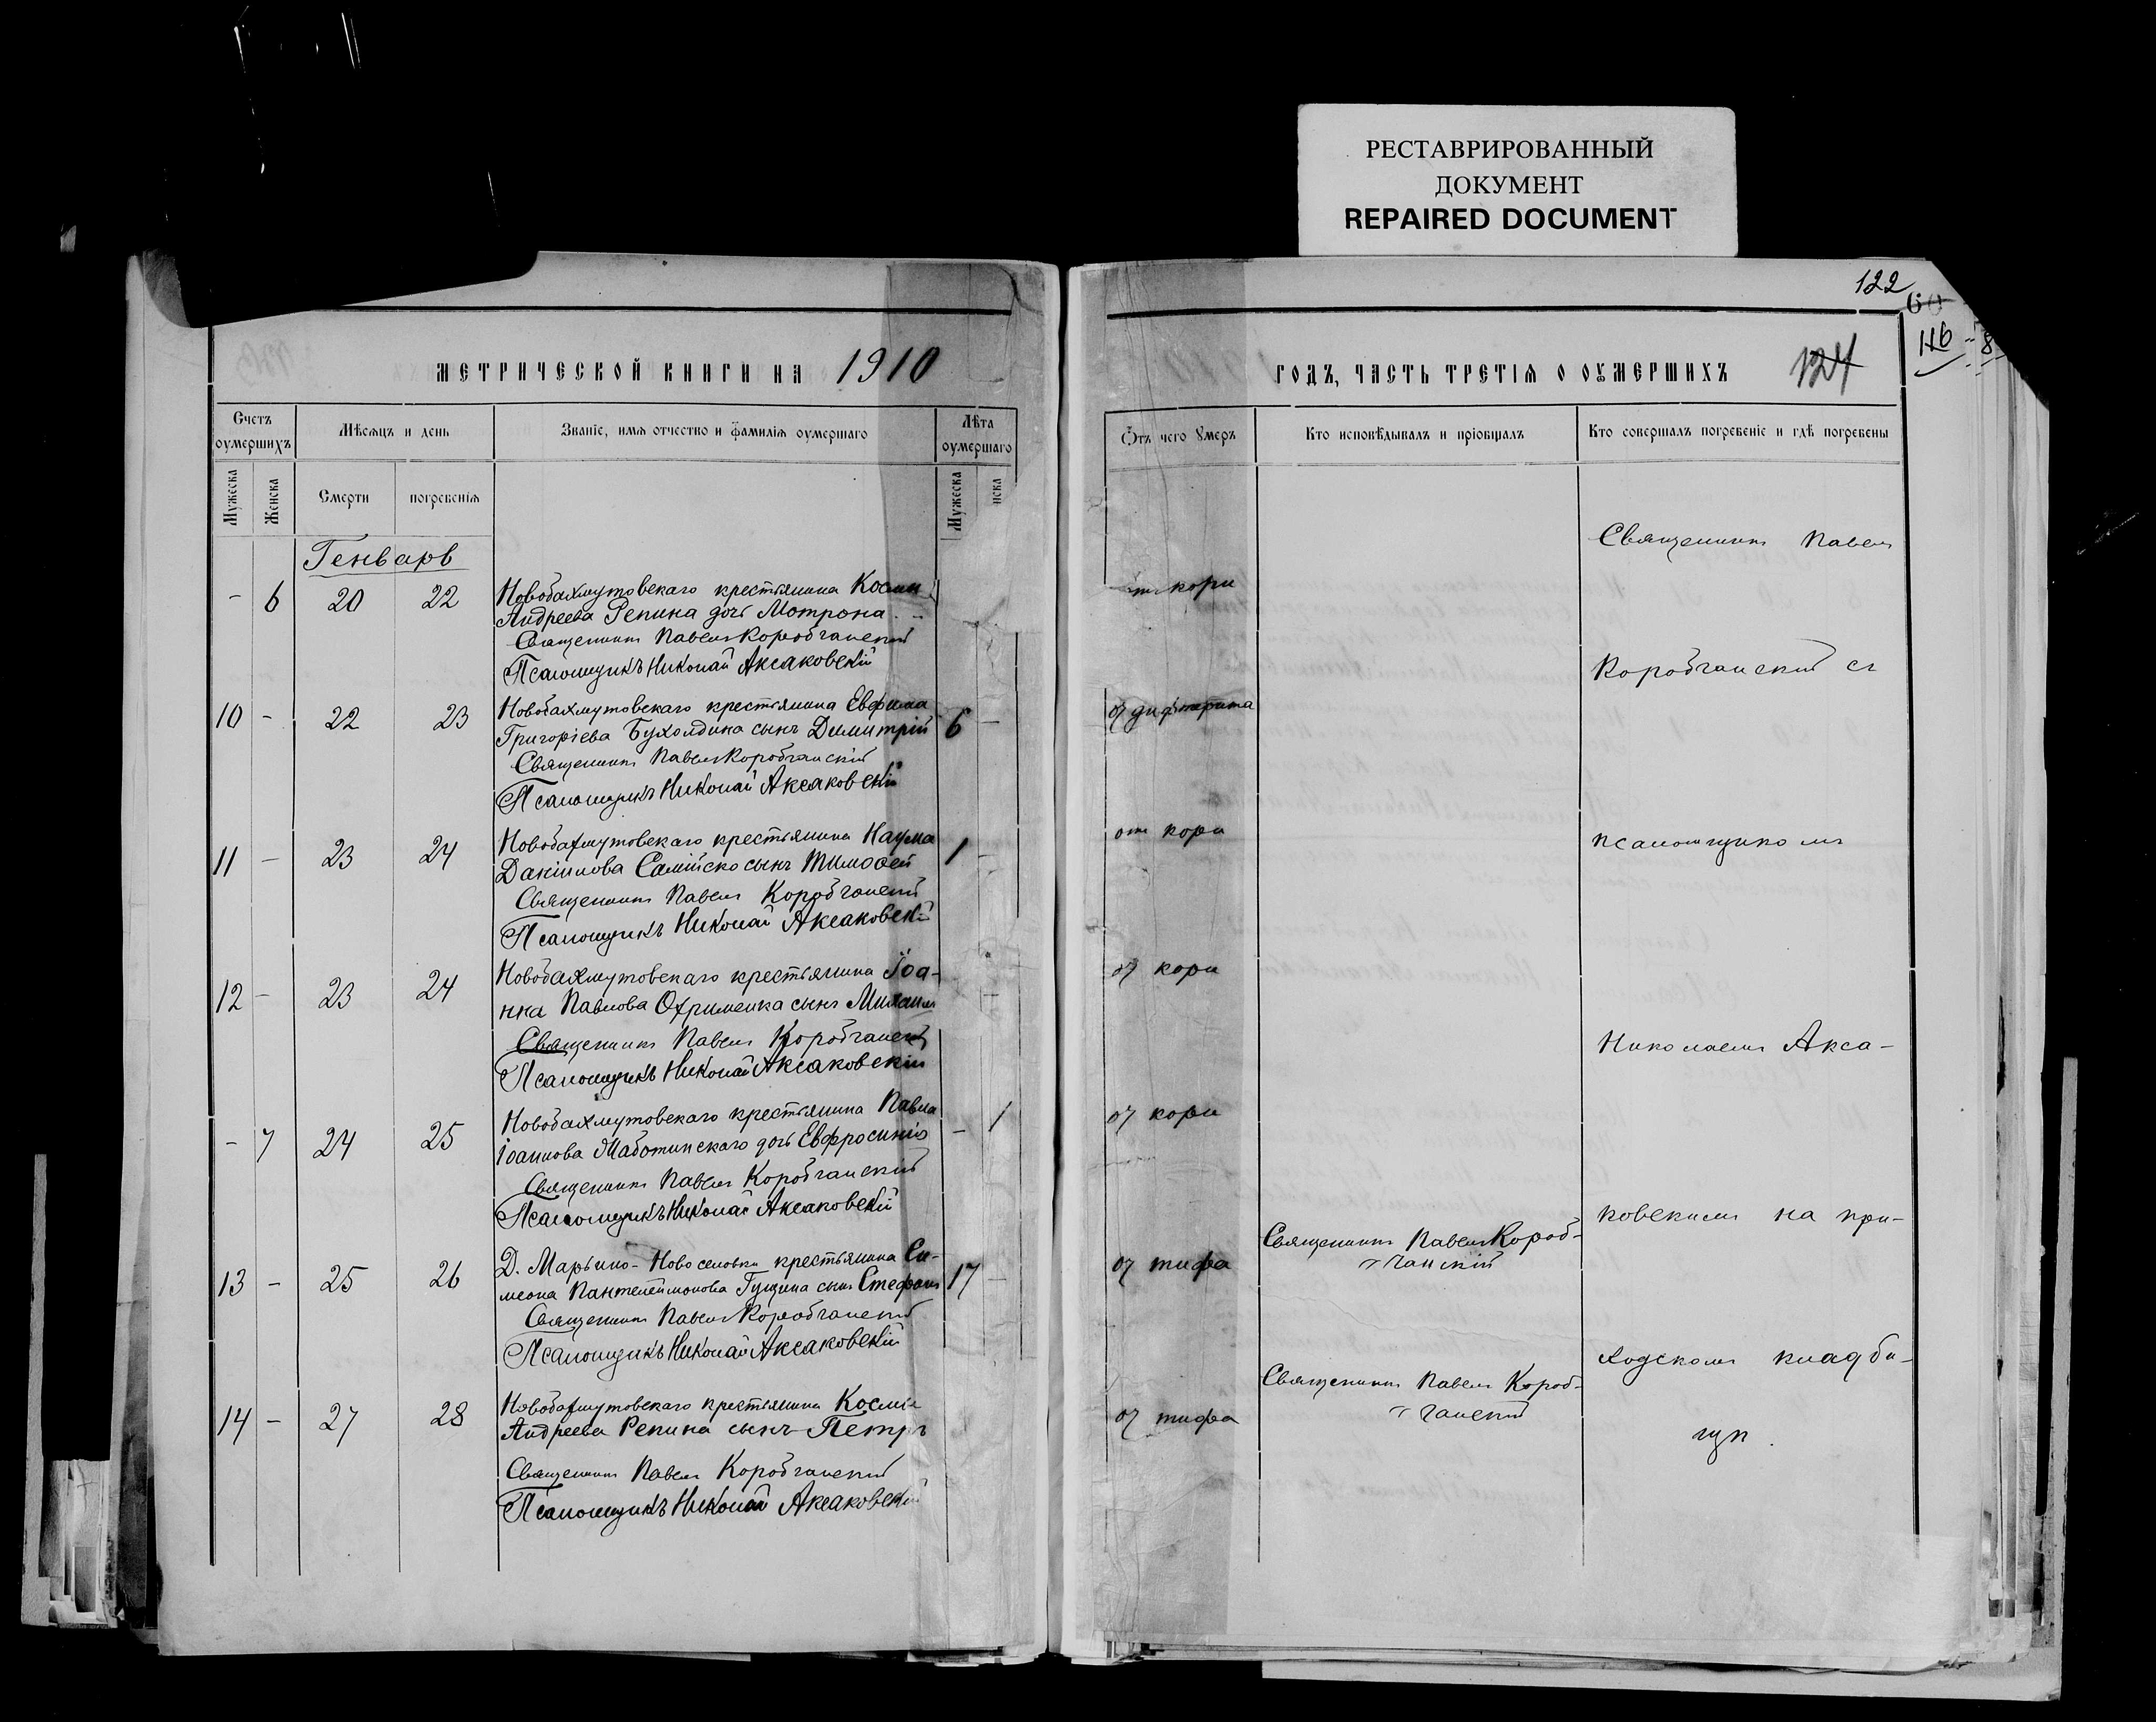 РЕСТАВРИРОВАННЫЙ
ДОКУМЕНТ
REPAIRED DOCUMENT
122
60
116
8
МЕТРИЧЕСКОЙ КНИГИ НА 1910
ГОДЪ, ЧАСТЬ ТРЕТІЯ О ОУМЕРШИХЪ
124
Счетъ оумершихъ
Мѣсяцъ и день
Званіе, имя отчество и фамилія оумершаго
Лѣта оумершаго
Отъ чего умеръ
Кто исповѣдывалъ и пріобщалъ
Кто совершалъ погребеніе и гдѣ погребены
Мужеска
Женска
Смерти
погребенія
Мужеска
нска
Генварь
- 6 20 22 Новобахмутовскаго крестьянина Космы
Андреева Репина дочь Мотрона
кори
Священникъ Павелъ Коробчанскій
Псаломщикъ Николай Аксаковскій
10 - 22 23 Новобахмутовскаго крестьянина Евфима
Григоріева Бухолдина сынъ Димитрій 6 -
от дифтерита
Священникъ Павелъ Коробчанскій
Псаломщикъ Николай Аксаковскій
11 - 23 24 Новобахмутовскаго крестьянина Наума
Даніилова сынъ Тимоѳей 1 -
от кори
Священникъ Павелъ Коробчанскій
Псаломщикъ Николай Аксаковскій
12 - 23 24 Новобахмутовскаго крестьянина Іоа-
нна Павлова Охрименка сынъ Михаилъ
от кори
Священникъ Павелъ Коробчанскій
Псаломщикъ Николай Аксаковскій
- 7 24 25 Новобахмутовскаго крестьянина Павла
Іоаннова Жаботинскаго дочь Евфросинія - 1
от кори
Священникъ Павелъ Коробчанскій
Псаломщикъ Николай Аксаковскій
13 - 25 26 Д. Марьино-Новоселовки крестьянина Си-
меона Пантелеймонова Гущина сынъ Стефанъ 17 -
от тифа
Священникъ Павелъ Короб-
чанскій
Священникъ Павелъ Коробчанскій
Псаломщикъ Николай Аксаковскій
14 - 27 28 Новобахмутовскаго крестьянина Космы
Андреева Репина сынъ Петръ
от тифа
Священникъ Павелъ Короб-
чанскій
Священникъ Павелъ Коробчанскій
Псаломщикъ Николай Аксаковскій
Священникъ Павелъ
Коробчанскій съ
псаломщикомъ
Николаемъ Акса-
ковскимъ на при-
ходскомъ кладби-
щѣ.